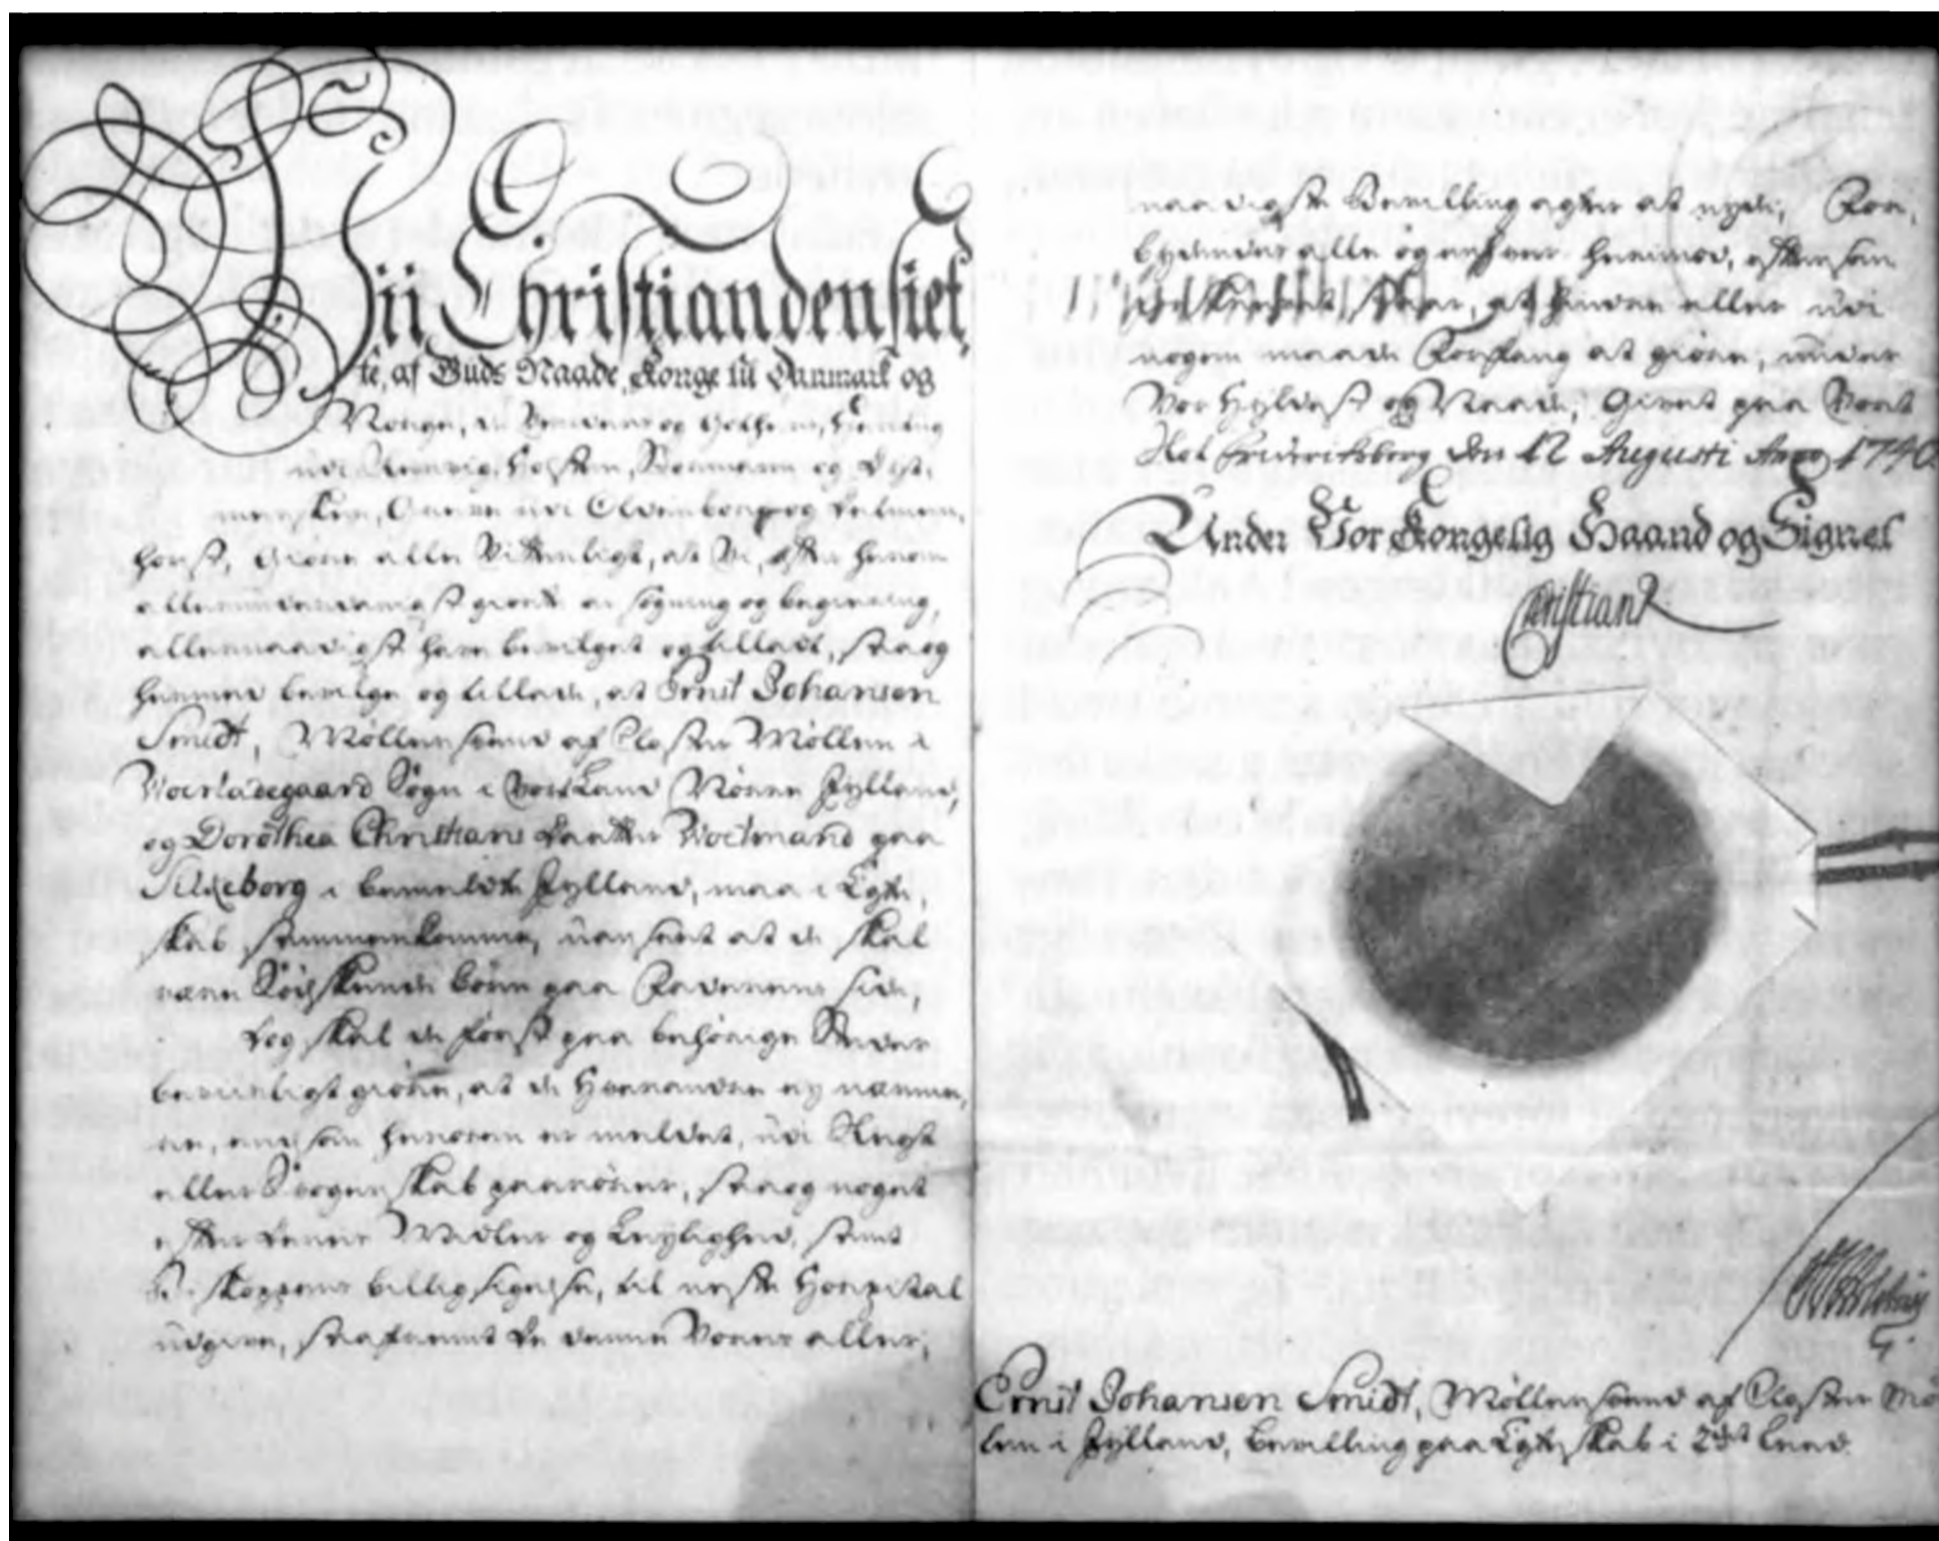 Vii Christian den siet,
te, af Guds Naade, Konge til Danmark og
Norge, de Venders og Gothers, Hertug
udi Slesvig, Holsten, Stormarn og Dyt,
mersken, Greve udi Oldenborg og Delmen,
horst, Giøre alle Vitterligt, at Vi, efter herom
allerunderdanigst giorte ansøgning og begiering,
allernaadigst have bevilget og tilladt, saa og
hermed bevilge og tillade, at Ernst Johansen
Smidt, Møllersvend af Closter Møllen i
Woerladegaard Sogn i vort Land Nørre Jylland,
og Dorothea Christians Daatter Woetmand paa
Silkeborg i bemeldte Jylland, maa i Egte,
skab sammenkomme, uanseet at de skal
være Sødskende børn paa Faderens side,
Dog skal de først paa behørige Steder
beviisligt giøre, at de hverandre ey nærme,
re, end som herover er meldet, udi Slegt
eller Svogerskab paarører, saa og noget
efter deres Midler og Leylighed, samt
Biskoppens billigsigelse, til neste Hospital
udgive, saafremt de denne Vores aller,
naadigste Bevilling agter at nyde, For,
bydendes alle og enhver herimod, eftersom
foreskrevet staar, at hindre eller udi
nogen maade Forfang at giøre, under
Vor Hyldest og Naade, Givet paa Vort
Slot Friderichsberg den 12 Augusti Anno 1740.
Under Vor Kongelig Haand og Signet
Christian R
Ernst Johansen Smidt, Møllersvend af Closter Mø
len i Jylland, Bevilling paa Egteskab i 2det Leed.